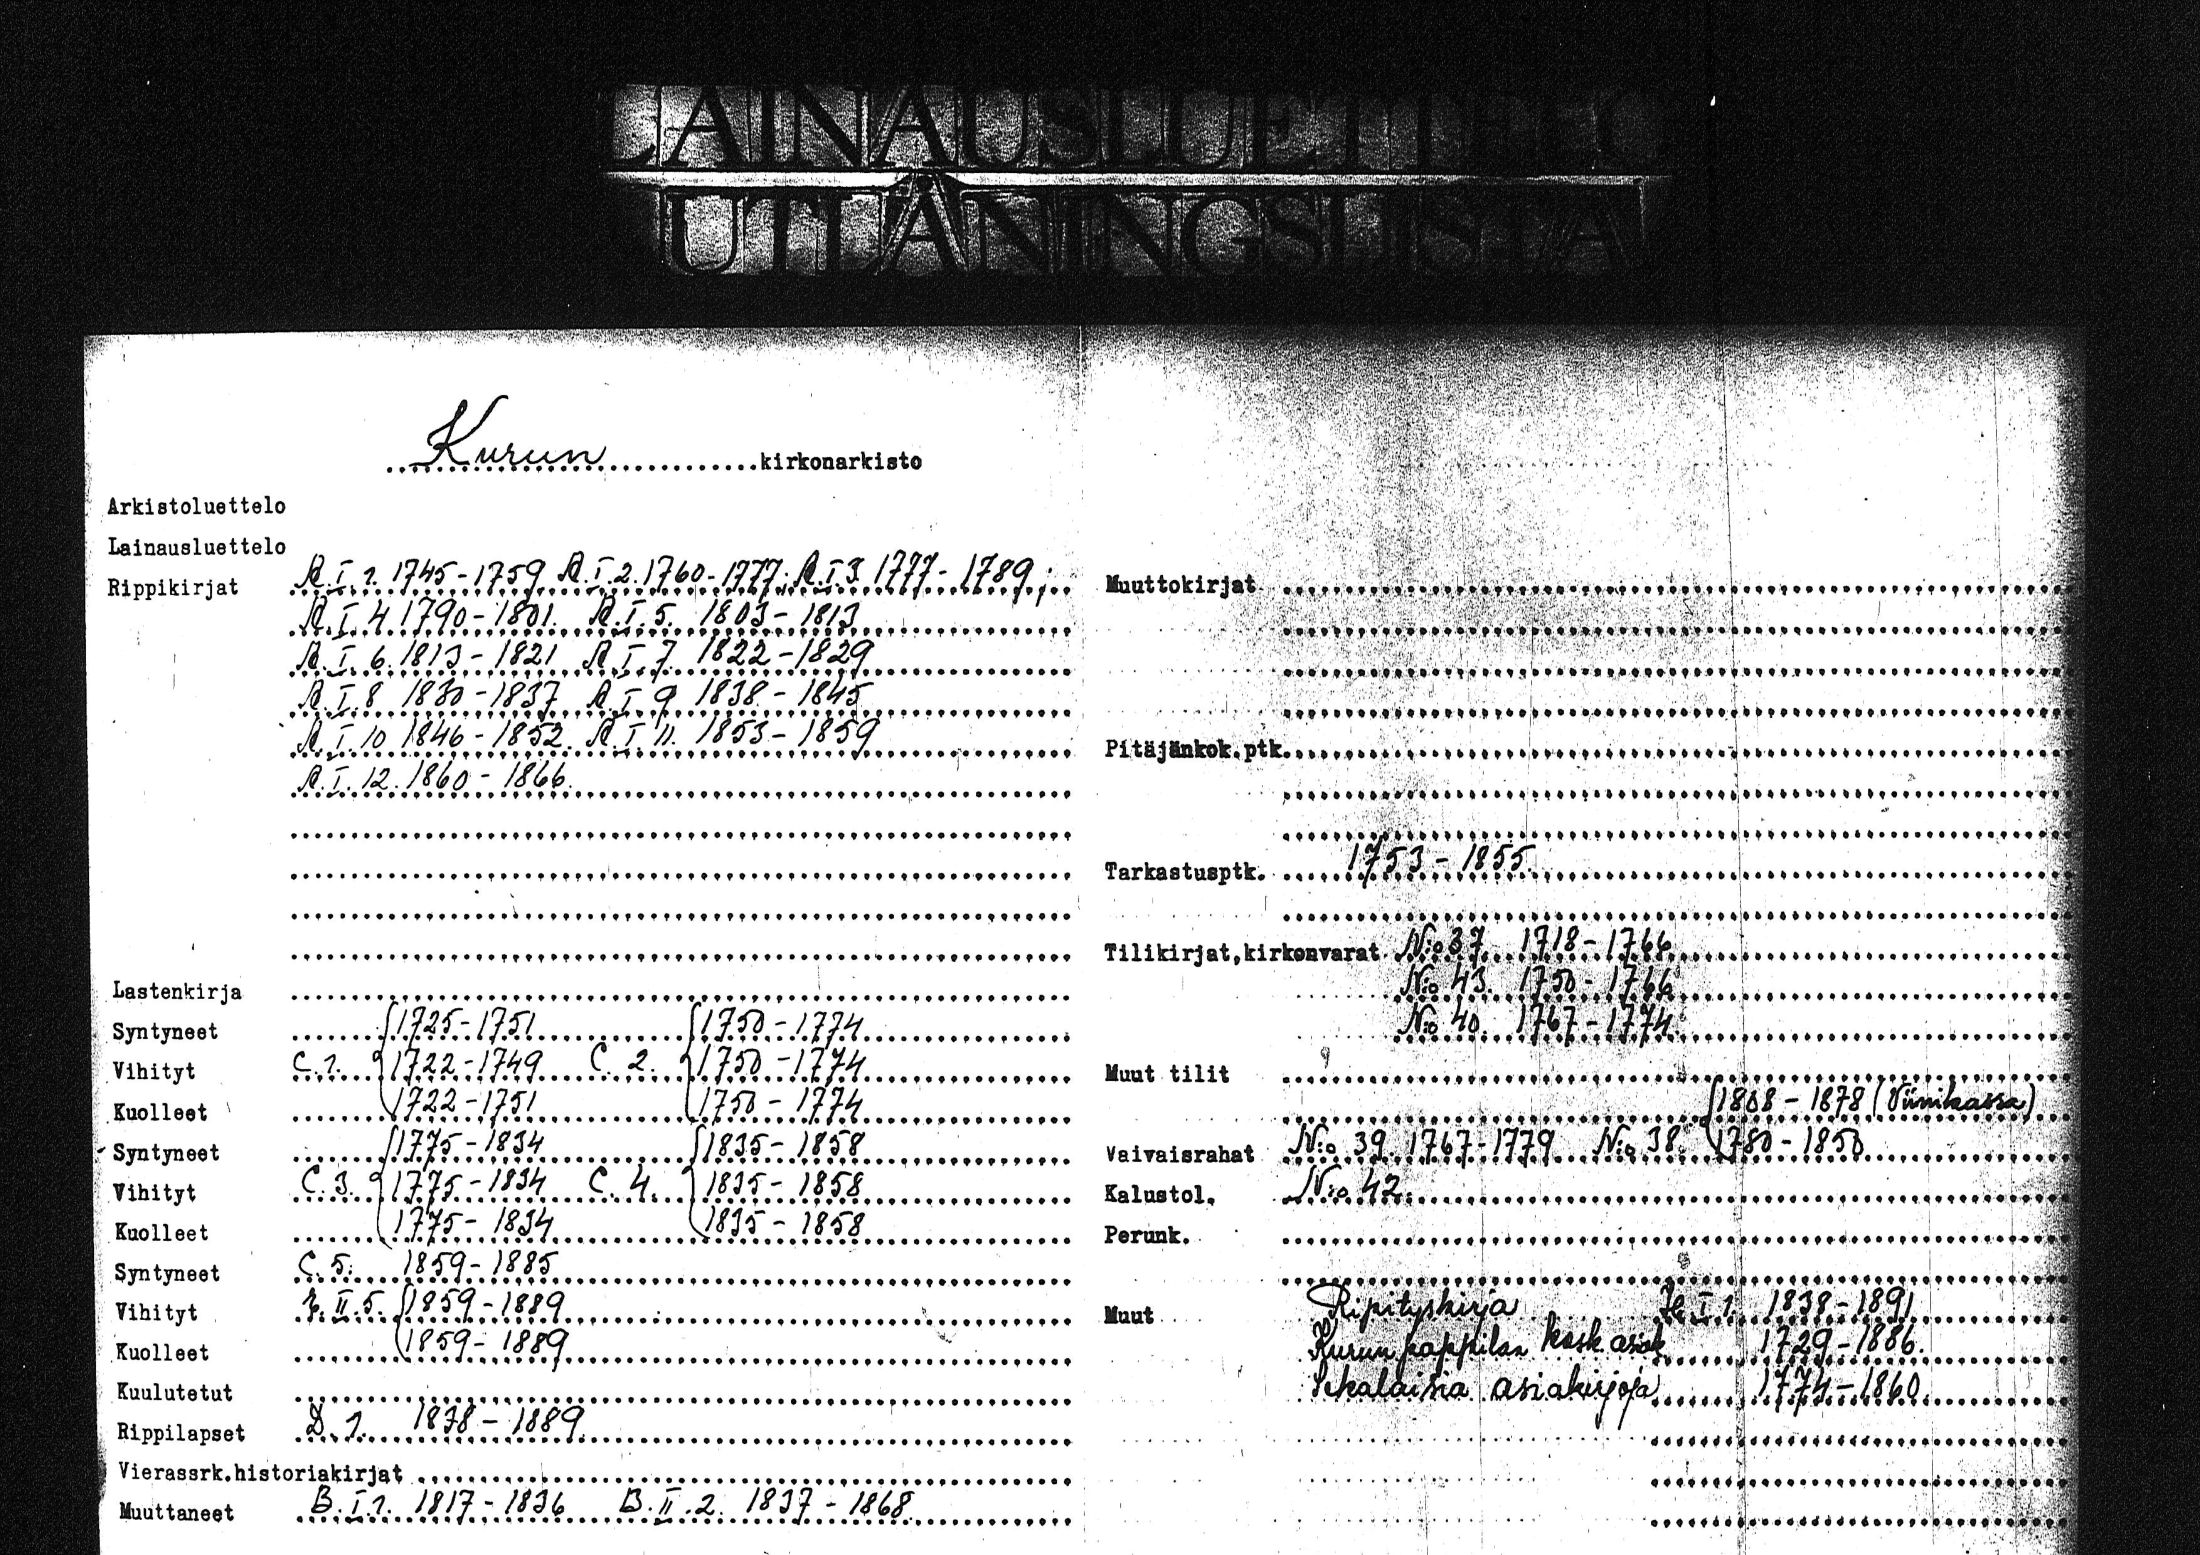 LAINAUSLUETTELO
UTLÅNINGSLISTA
Kurun kirkonarkisto
Arkistoluettelo
Lainausluettelo
Rippikirjat R.I.1. 1745-1759 R.I.2. 1760-1777; R.I.3. 1777-1789;
R.I.4. 1790-1801. R.I.5. 1803-1813
R.I.6. 1813-1821 R.I.7. 1822-1829
R.I.8 1830-1837 R.I.9 1838-1845
R.I.10 1846-1852. R.I.11. 1853-1859
R.I.12. 1860-1866.
Lastenkirja
Syntyneet 1725-1751 1750-1774
Vihityt C.1. 1722-1749 C.2. 1750-1774
Kuolleet 1722-1751 1750-1774
Syntyneet 1775-1834 1835-1858
Vihityt C.3. 1775-1834 C.4. 1835-1858
Kuolleet 1775-1834 1835-1858
Syntyneet C.5. 1859-1885
Vihityt II.5. 1859-1889
Kuolleet 1859-1889
Kuulutetut
Rippilapset D.1. 1878-1889
Vierassrk.historiakirjat
Muuttaneet B.I.1. 1817-1836 B.II.2. 1837-1868.
Muuttokirjat
Pitäjänkok.ptk.
Tarkastusptk. 1753-1855.
Tilikirjat,kirkonvarat N:o 37. 1718-1766
N:o 43. 1750-1766
N:o 40. 1767-1774.
Muut tilit
1808-1878 (Viinikassa)
Vaivaisrahat N:o 39. 1767-1779 N:o 38. 1780-1850
Kalustol. N:o 42.
Perunk.
Muut Ripityskirja I 1. 1838-1891
Kurun pappilan kosk. asiak. 1729-1886.
Sekalaisia asiakirjoja 1774-1860.